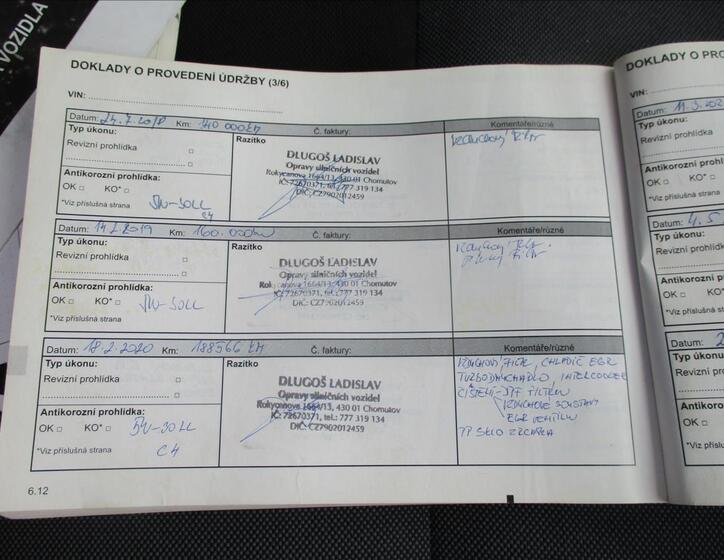 VOZIDLA
DOKLADY O PROVEDENÍ ÚDRŽBY (3/6)
VIN:
Datum: 24.7.2018 Km: 140 000 KM Č. faktury: Komentáře/různé
Typ úkonu:
Revizní prohlídka
Razítko
DLUGOŠ LADISLAV
Opravy silničních vozidel
Rokycanova 1664/13, 430 01 Chomutov
IČ: 72670371, tel.: 777 319 134
DIČ: CZ7902012459
Vzduchový filtr
Antikorozní prohlídka:
OK KO*
*Viz příslušná strana
5W-30LL
C4
Datum: 14.2.2019 Km: 160.000km Č. faktury: Komentáře/různé
Typ úkonu:
Revizní prohlídka
Razítko
DLUGOŠ LADISLAV
Opravy silničních vozidel
Rokycanova 1664/13, 430 01 Chomutov
IČ: 72670371, tel.: 777 319 134
DIČ: CZ7902012459
filtr
Antikorozní prohlídka:
OK KO*
*Viz příslušná strana
5W-30LL
Datum: 18.2.2020 Km: 188566 KM Č. faktury: Komentáře/různé
Typ úkonu:
Revizní prohlídka
Razítko
DLUGOŠ LADISLAV
Opravy silničních vozidel
Rokycanova 1664/13, 430 01 Chomutov
IČ: 72670371, tel.: 777 319 134
DIČ: CZ7902012459
VZDUCHOVÝ FILTR, CHLADIČ EGR
TURBODMYCHADLO, INTERCOOLER
ČIŠTĚNÍ - DPF FILTRU
VZDUCHOVÉ SOUSTAVY
EGR VENTILU
PP SKLO ZRCÁTKA
Antikorozní prohlídka:
OK KO*
*Viz příslušná strana
5W-30LL
C4
6.12
DOKLADY O PRO
VIN:
Datum: 11.3.202
Typ úkonu:
Revizní prohlídka
Antikorozní prohlí
OK KO*
*Viz příslušná stran
Datum: 4.5
Typ úkonu:
Revizní prohlíd
Antikorozní pro
OK KO
*Viz příslušná s
Datum: 2
Typ úkonu:
Revizní prohl
Antikorozní
OK
*Viz příslušn